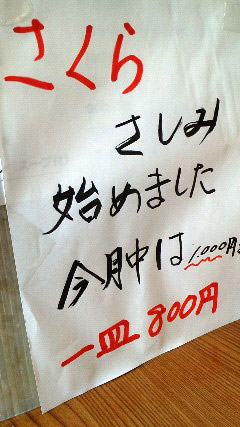 さくら
さしみ
始めました
今月中は1,000円
一皿 800円